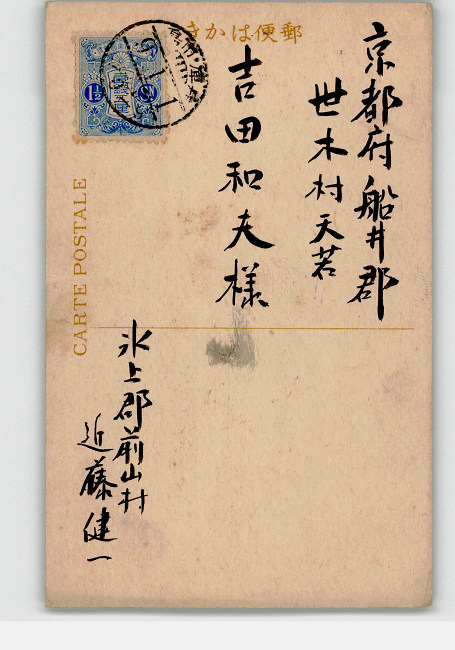 きかは便郵
京都府船井郡
世木村天若
吉田和夫様
氷上郡前山村
近藤健一
CARTE POSTALE
1½